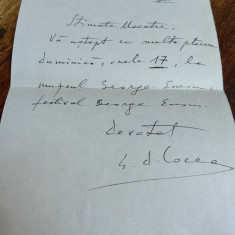 Stimate Maestre,
Vă aștept cu multă plăcere
duminică, orele 17, la
muzeul George Enescu,
festival George Enescu.
devotat